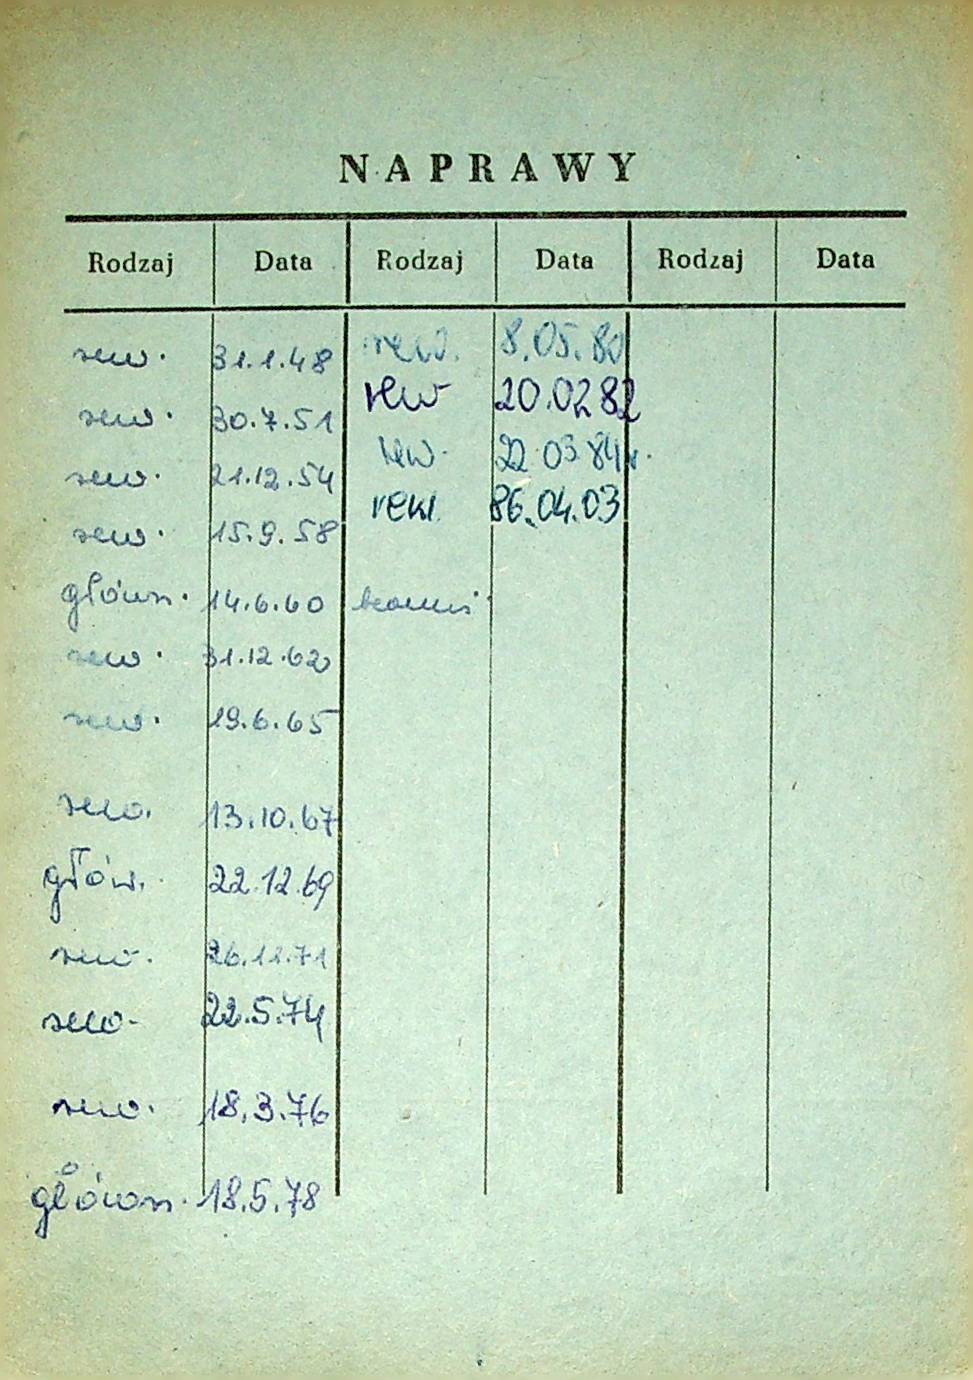 NAPRAWY
Rodzaj Data Rodzaj Data Rodzaj Data
rew. 31.1.48
rew. 30.7.51
rew. 21.12.54
rew. 15.9.58
główn. 14.6.60
rew. 31.12.62
rew. 19.6.65
rew. 13.10.67
głów. 22.12.69
rew. 26.11.71
rew. 22.5.74
rew. 18.3.76
główn. 18.5.78
rew. 8.05.80
rew 20.02 82
rew. 22.03 84 r.
rekl. 86.04.03